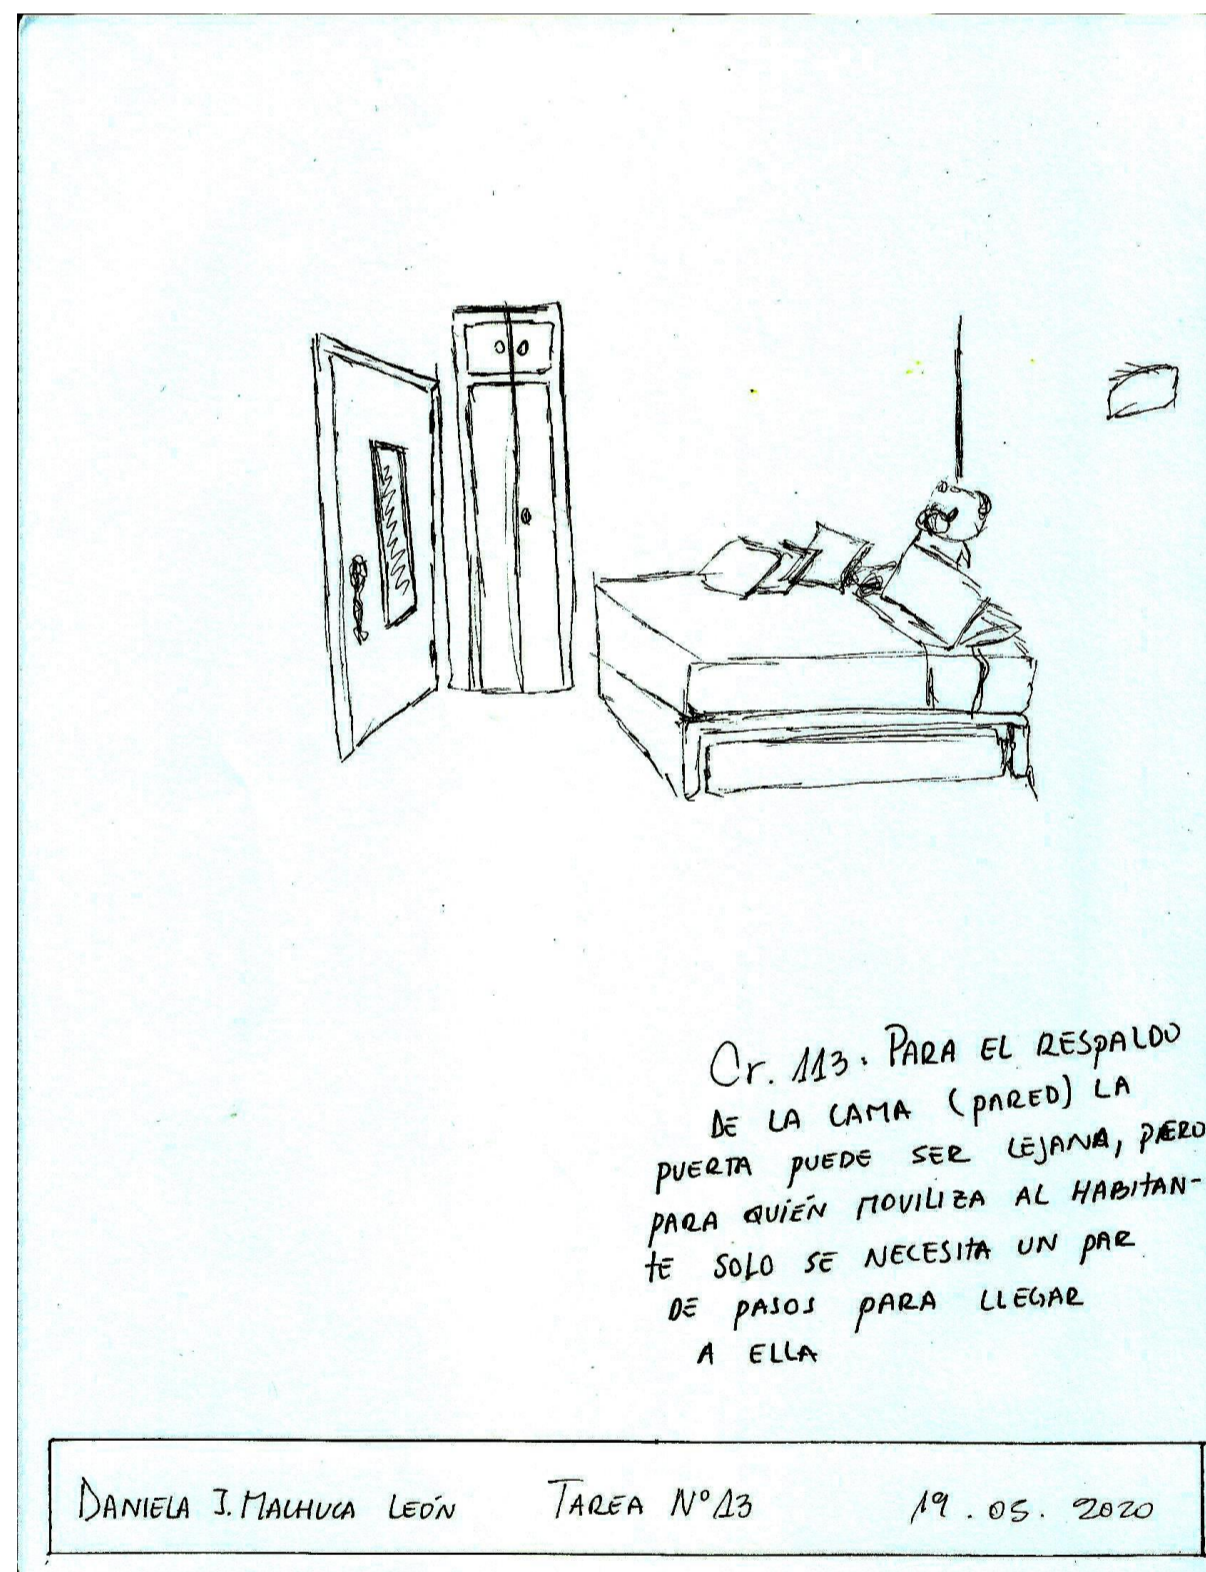 Cr. 113: PARA EL RESPALDO
DE LA CAMA (PARED) LA
PUERTA PUEDE SER LEJANA, PERO
PARA QUIÉN MOVILIZA AL HABITAN-
TE SOLO SE NECESITA UN PAR
DE PASOS PARA LLEGAR
A ELLA
DANIELA J. MALHUCA LEÓN TAREA N° 13 19.05.2020